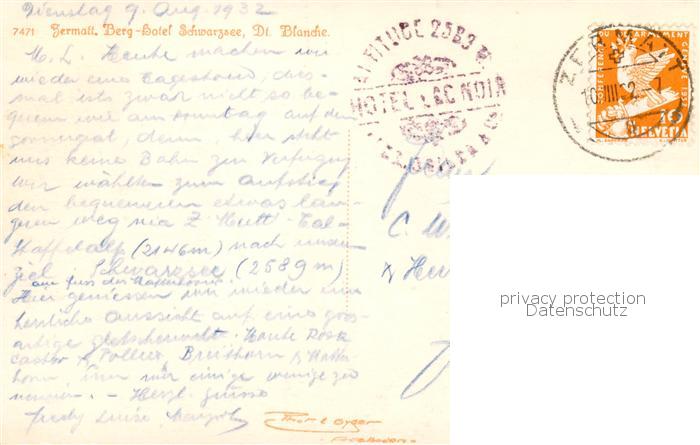 Dienstag 9. Aug. 1932
7471 Zermatt. Berg-Hotel Schwarzsee, Dt. Blanche.
M. L. Heute machen wir
wieder eine Tagestour, dies-
mal ists zwar nicht so be-
quem wie am Sonntag auf den
Gornergrat, denn hier steht
uns keine Bahn zur Verfügung
wir wählten zum Aufstieg
den bequemeren etwas län-
geren Weg via Z'Mutt-Tal-
Staffelalp (2146m) nach unserem
Ziel, Schwarzsee (2589m)
am Fuss des Matterhorns.
Hier geniessen wir wieder eine
herrliche Aussicht auf eine gros-
artige Gletscherwelt. Monte Rosa
Castor & Pollux, Breithorn & Matter-
horn, um nur einige wenige zu
nennen. - Herzl. Grüsse
Fredy Luise
ALTITUDE 2589
HOTEL LAC NOIR
ZERMATT
10.VIII.32
HELVETIA
C. W
Thor E Gyger
Adelboden
privacy protection
Datenschutz